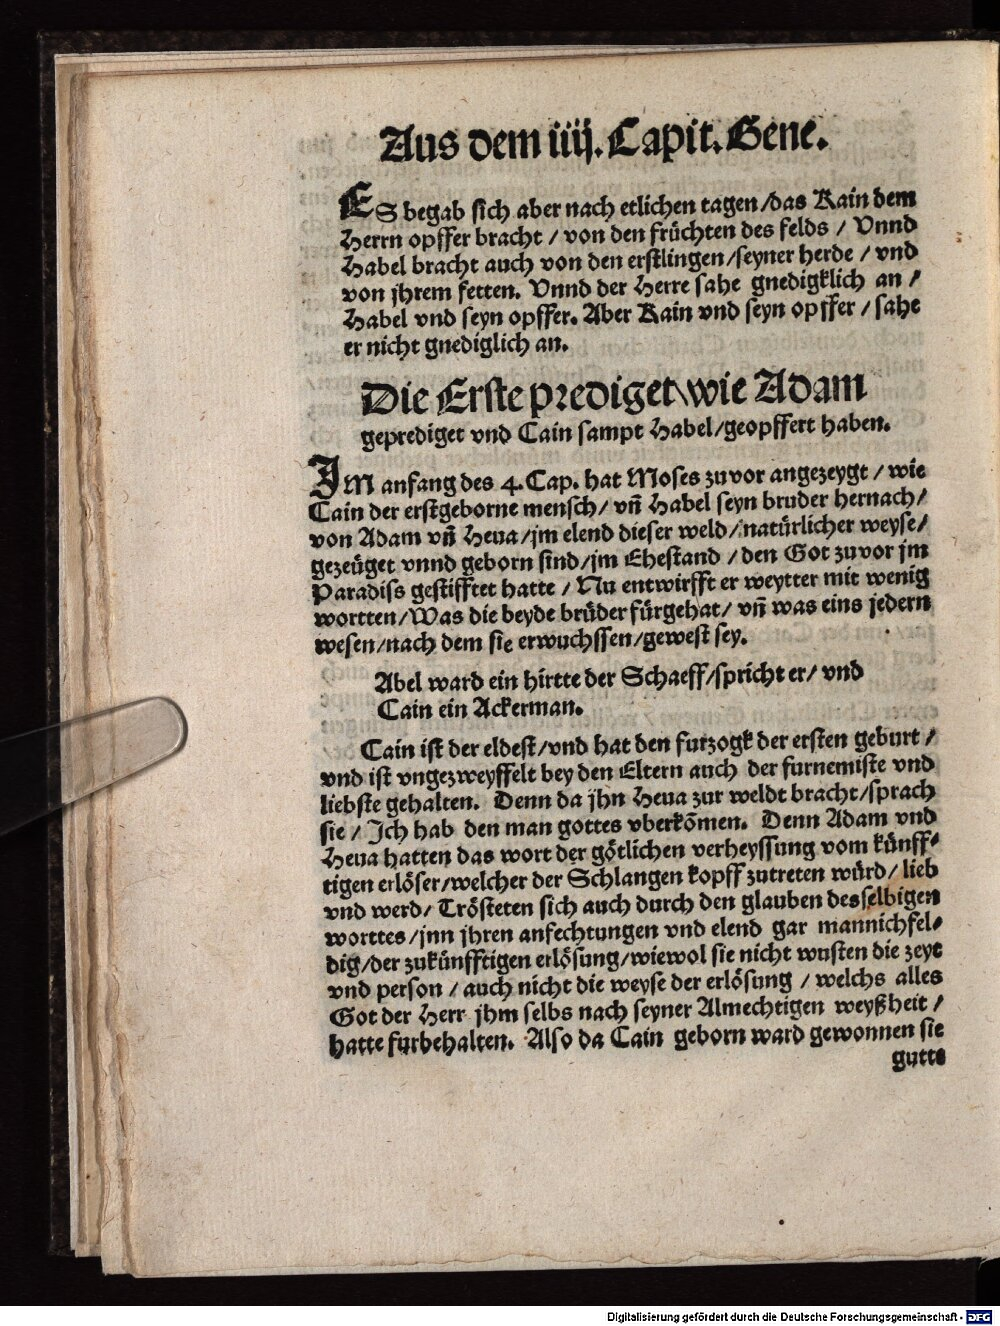 Aus dem iiij. Capit. Gene.
ES begab sich aber nach etlichen tagen/das Kain dem
Herrn opffer bracht / von den früchten des felds / Vnnd
Habel bracht auch von den erstlingen/seyner herde / vnd
von jhrem fetten. Vnnd der Herre sahe gnedigklich an /
Habel vnd seyn opffer. Aber Kain vnd seyn opffer / sahe
er nicht gnediglich an.
Die Erste prediget\wie Adam
geprediget vnd Cain sampt Habel/geopffert haben.
IM anfang des 4. Cap. hat Moses zuvor angezeygt / wie
Cain der erstgeborne mensch/ vñ Habel seyn bruder hernach/
von Adam vñ Heua/jm elend dieser weld/natürlicher weyse/
gezeüget vnnd geborn sind/jm Ehestand / den Got zuvor jm
Paradiss gestifftet hatte / Nu entwirfft er weytter mit wenig
wortten/Was die beyde brüder fürgehat/ vñ was eins jedern
wesen/nach dem sie erwuchssen/gewest sey.
Abel ward ein hirtte der Schaeff/spricht er/ vnd
Cain ein Ackerman.
Cain ist der eldest/vnd hat den furzogk der ersten geburt /
vnd ist vngezweyffelt bey den Eltern auch der furnemiste vnd
liebste gehalten. Denn da jhn Heua zur weldt bracht/sprach
sie / Ich hab den man gottes vberkõmen. Denn Adam vnd
Heua hatten das wort der götlichen verheyssung vom künff-
tigen erlöser/welcher der Schlangen kopff zutreten würd/ lieb
vnd werd/ Trösteten sich auch durch den glauben desselbigen
worttes/jnn jhren anfechtungen vnd elend gar mannichfel-
dig/der zukünfftigen erlösung/wiewol sie nicht wusten die zeyt
vnd person / auch nicht die weyse der erlösung / welchs alles
Got der Herr jhm selbs nach seyner Almechtigen weyßheit /
hatte furbehalten. Also da Cain geborn ward gewonnen sie
gutte
Digitalisierung gefördert durch die Deutsche Forschungsgemeinschaft - DFG